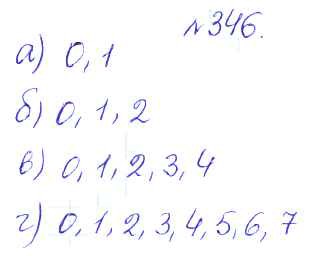 №346.
а) 0, 1
б) 0, 1, 2
в) 0, 1, 2, 3, 4
г) 0, 1, 2, 3, 4, 5, 6, 7